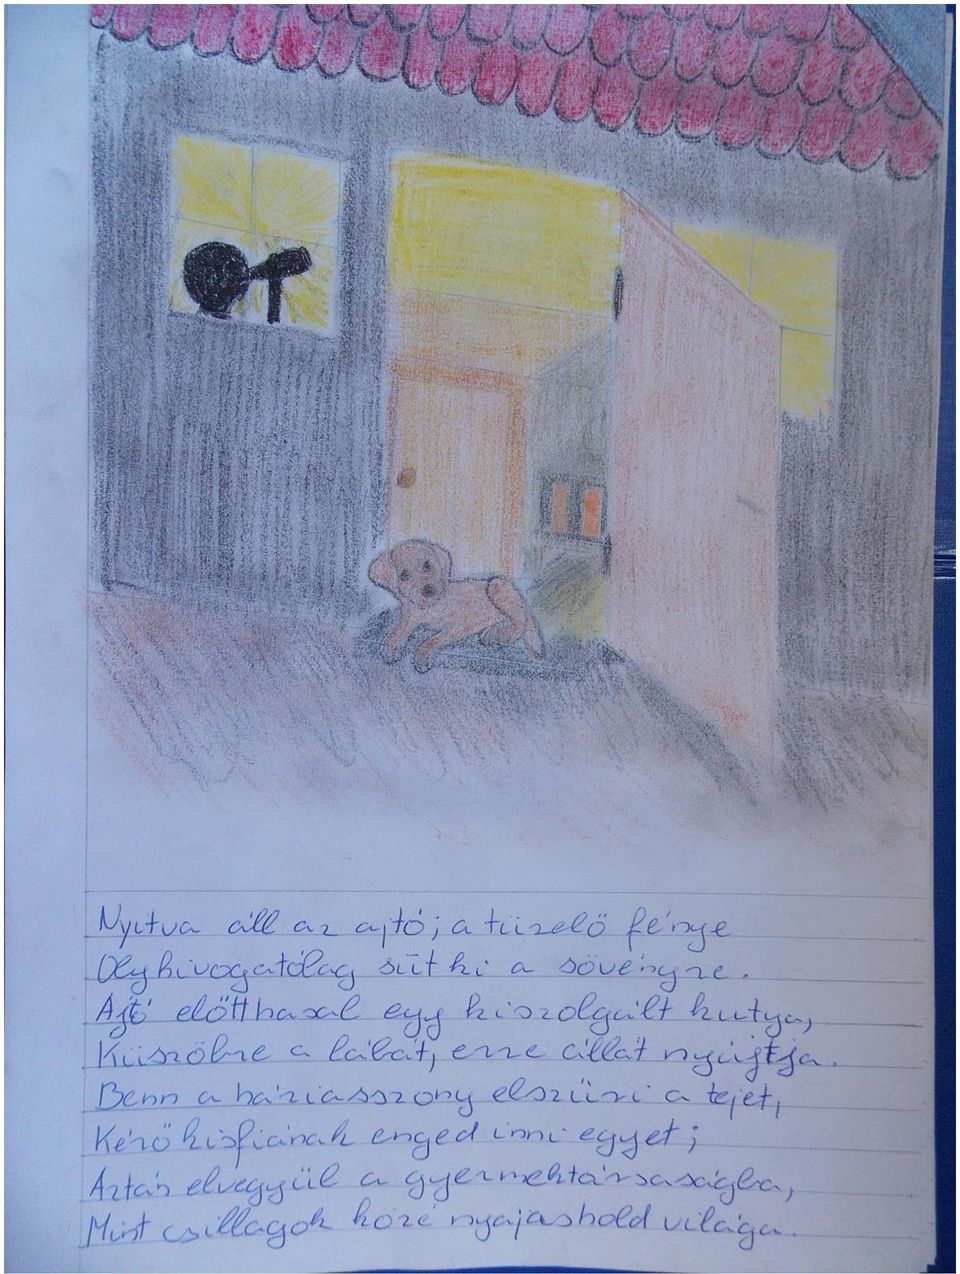 Nyitva áll az ajtó; a tüzelő fénye
Oly hivogatólag süt ki a sövényre.
Ajtó előtt hasal egy kiszolgált kutya,
Küszöbre a lábát, erre állát nyújtja.
Benn a háziasszony elszűri a tejet,
Kérő kisfiának enged inni egyet;
Aztán elvegyül a gyermektársaságba,
Mint csillagok közé nyájas hold világa.